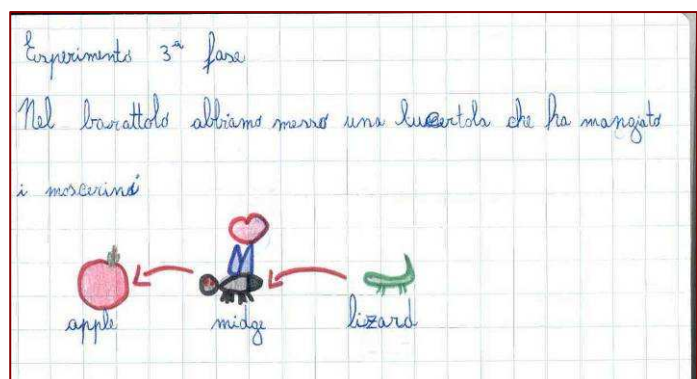 Esperimento 3ª fase
Nel barattolo abbiamo messo una lucertola che ha mangiato
i moscerini
apple midge lizard